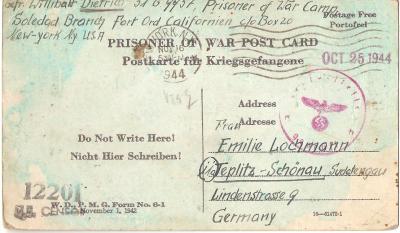 Gefr. Willibalt Dietrich 31 G Prisoner of War Camp
Soledad Branch Fort Ord Californien c/o Box 20
New-York NY USA
Postage Free
Portofrei
PRISONER OF WAR POST CARD
Postkarte für Kriegsgefangene
NOV 16
1944
OCT 25 1944
Address
Adresse
Do Not Write Here!
Nicht Hier Schreiben!
Frau
Emilie Lochmann
Teplitz-Schönau Sudetengau
Lindenstrasse 9
Germany
12201
U.S. CENSOR
W. D., P. M. G. Form No. 6-1
November 1, 1942
16—31472-1